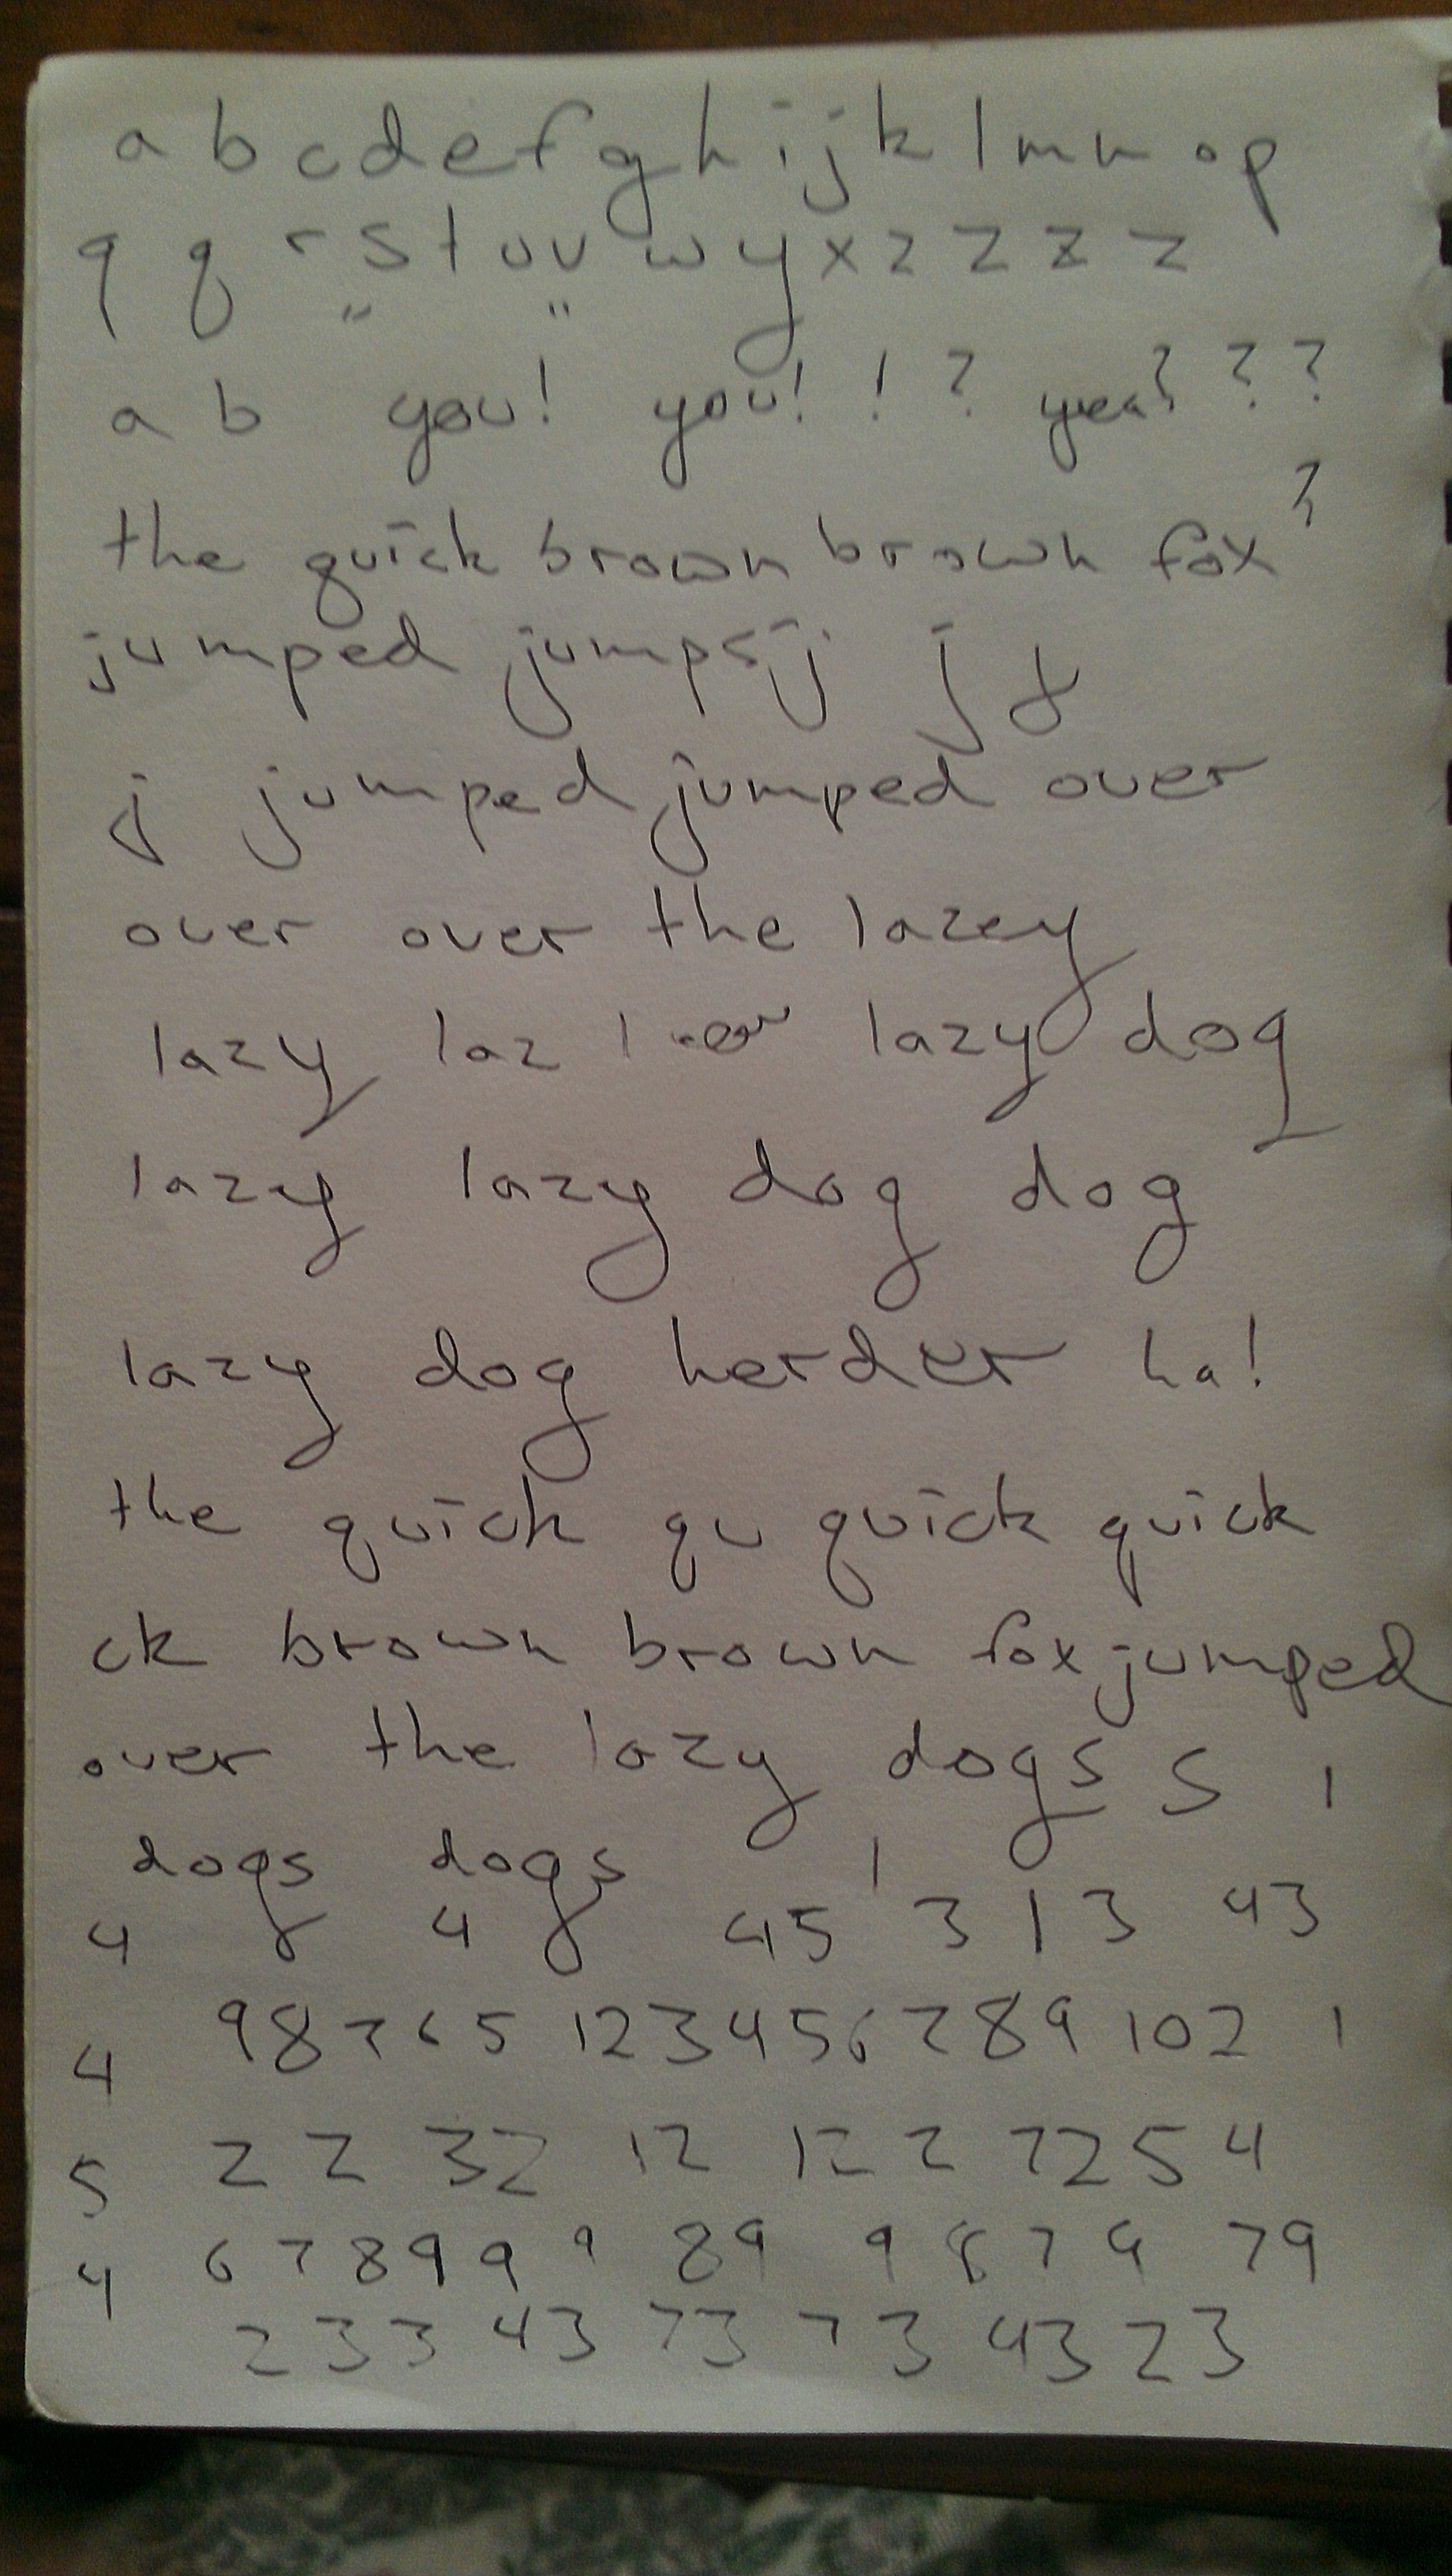 a b c d e f g h i j k l m n o p
q q r s t u v w y x z z z z
" "
a b you! you! ! ? yea? ? ?
?
the quick brown brown fox
jumped jumps j j j
j jumped jumped over
over over the lazey
lazy laz l lazy dog
lazy lazy dog dog
lazy dog herder ha!
the quick qu quick quick
ck brown brown fox jumped
over the lazy dogs s ,
dogs dogs
4 4 45 3 1 3 43
4 98765 123456789 102 1
5 2 2 32 12 12 2 7254
4 6 7 8 9 9 9 89 9 8 7 9 79
2 3 3 43 73 7 3 43 23